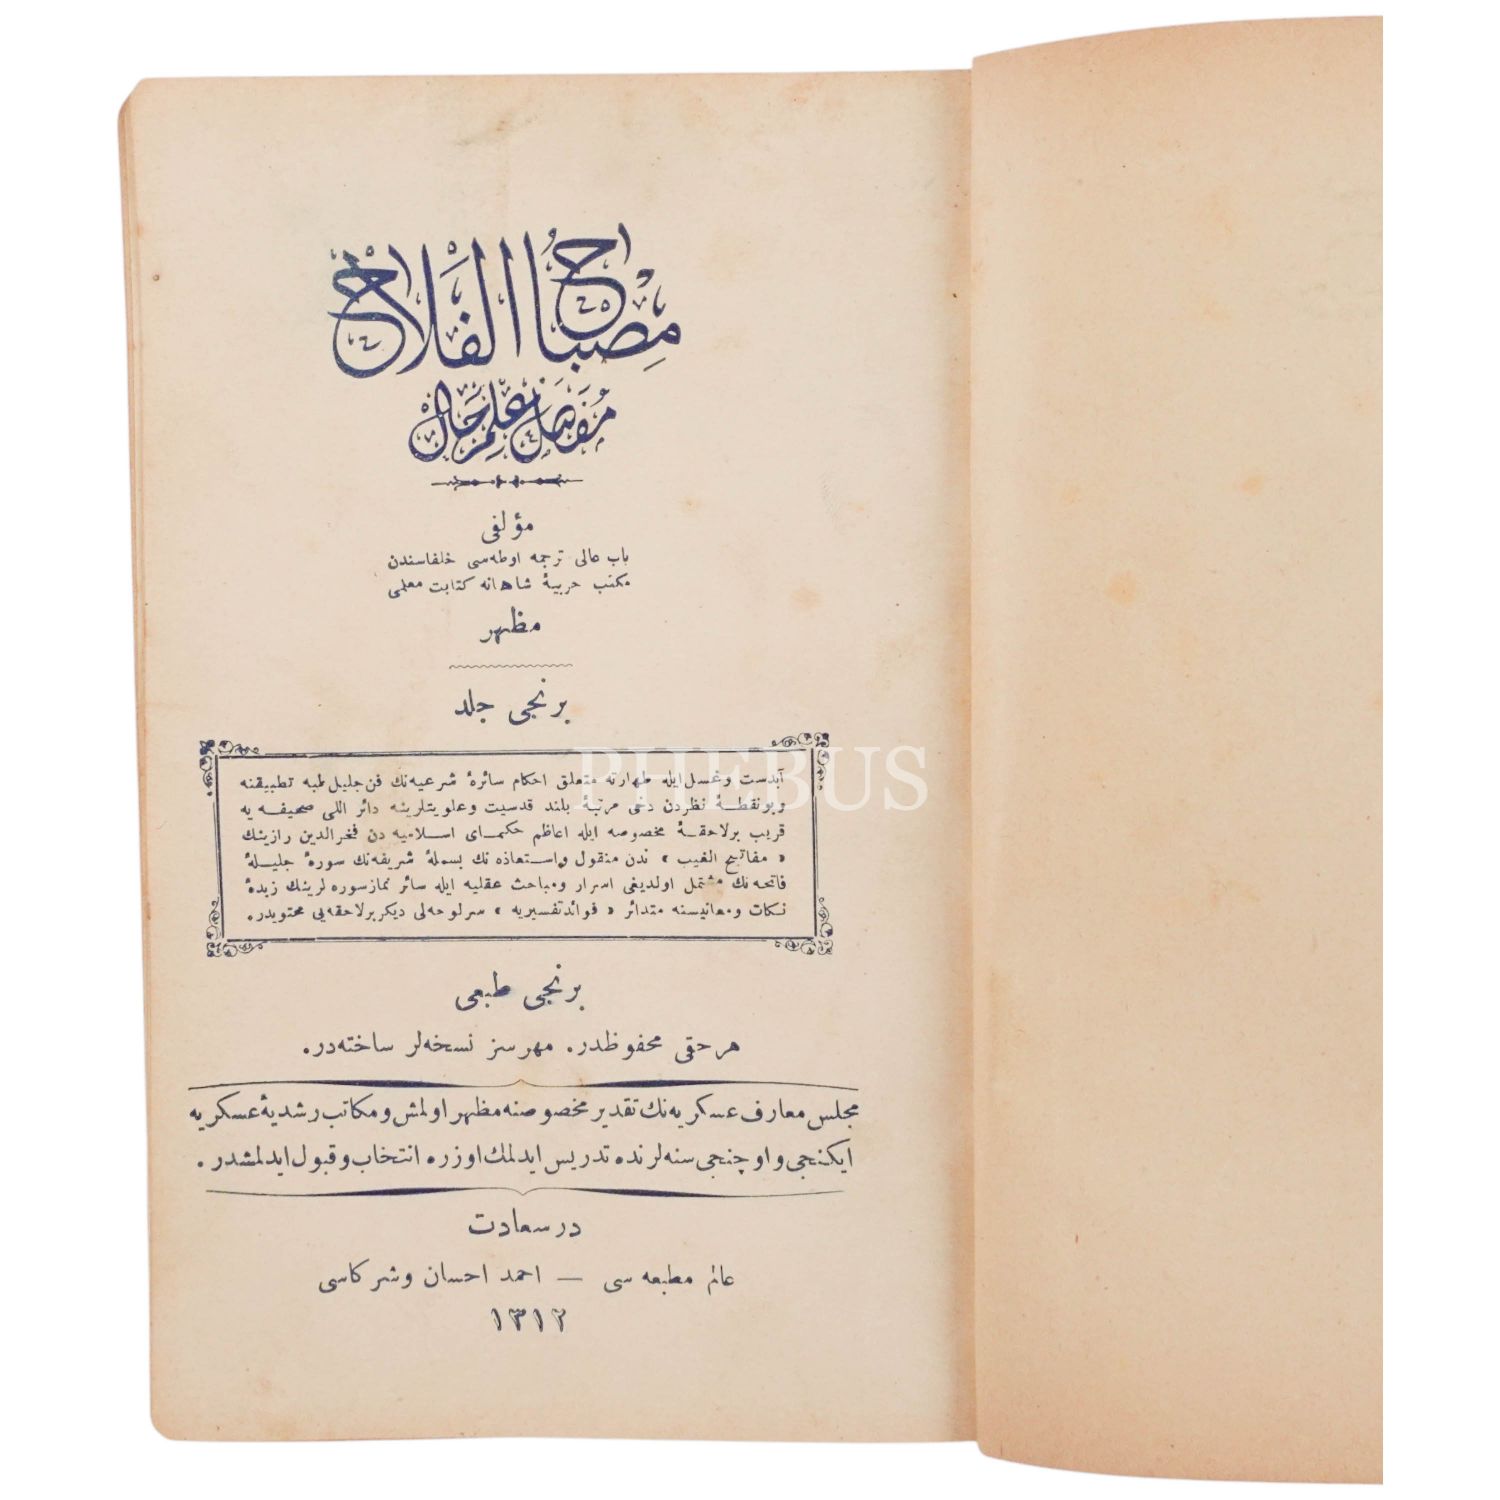 مصباح الفلاح
مفصل علم حال
مؤلفی
باب عالی ترجمه اوطه‌سی خلفاسندن
مكتب حربیهٔ شاهانه كتابت معلمی
مظهر
برنجی جلد
آبدست وغسل ایله طهارته متعلق احكام سائرهٔ شرعیه‌نك فن جلیل طبه تطبیقنه
وبونقطهٔ نظردن دخی مرتبهٔ بلند قدسیت وعلویتلرینه دائر اللی صحیفه‌یه
قریب برلاحقهٔ مخصوصه ایله اعاظم حكمای اسلامیه‌دن فخرالدین رازینك
« مفاتیح الغیب » ندن منقول واستعاذه‌نك بسملهٔ شریفه‌نك سورهٔ جلیلهٔ
فاتحه‌نك مشتمل اولدیغی اسرار ومباحث عقلیه ایله سائر نمازسوره‌لرینك زبدهٔ
نكات ومعانیسنه متدائر « فوائدتفسیریه » سرلوحه‌لی دیكربرلاحقه‌یی محتویدر.
PHEBUS
برنجی طبعی
هرحقی محفوظدر. مهرسز نسخه‌لر ساخته‌در.
مجلس معارف عسكریه‌نك تقدیر مخصوصنه مظهر اولمش ومكاتب رشدیهٔ عسكریه
ایكنجی واوچنجی سنه‌لرنده تدریس ایدلمك اوزره انتخاب وقبول ایدلمشدر.
درسعادت
عالم مطبعه‌سی — احمد احسان وشركاسی
١٣١٢